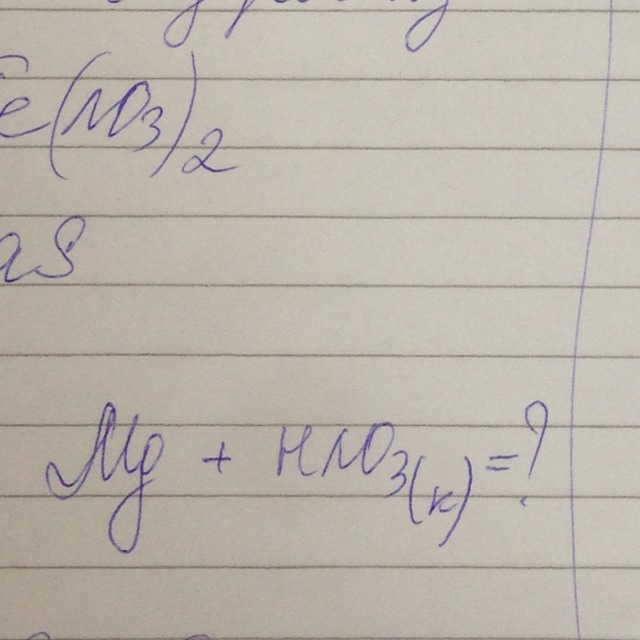 e(NO3)2
aS
Mg + HNO3(к) = ?